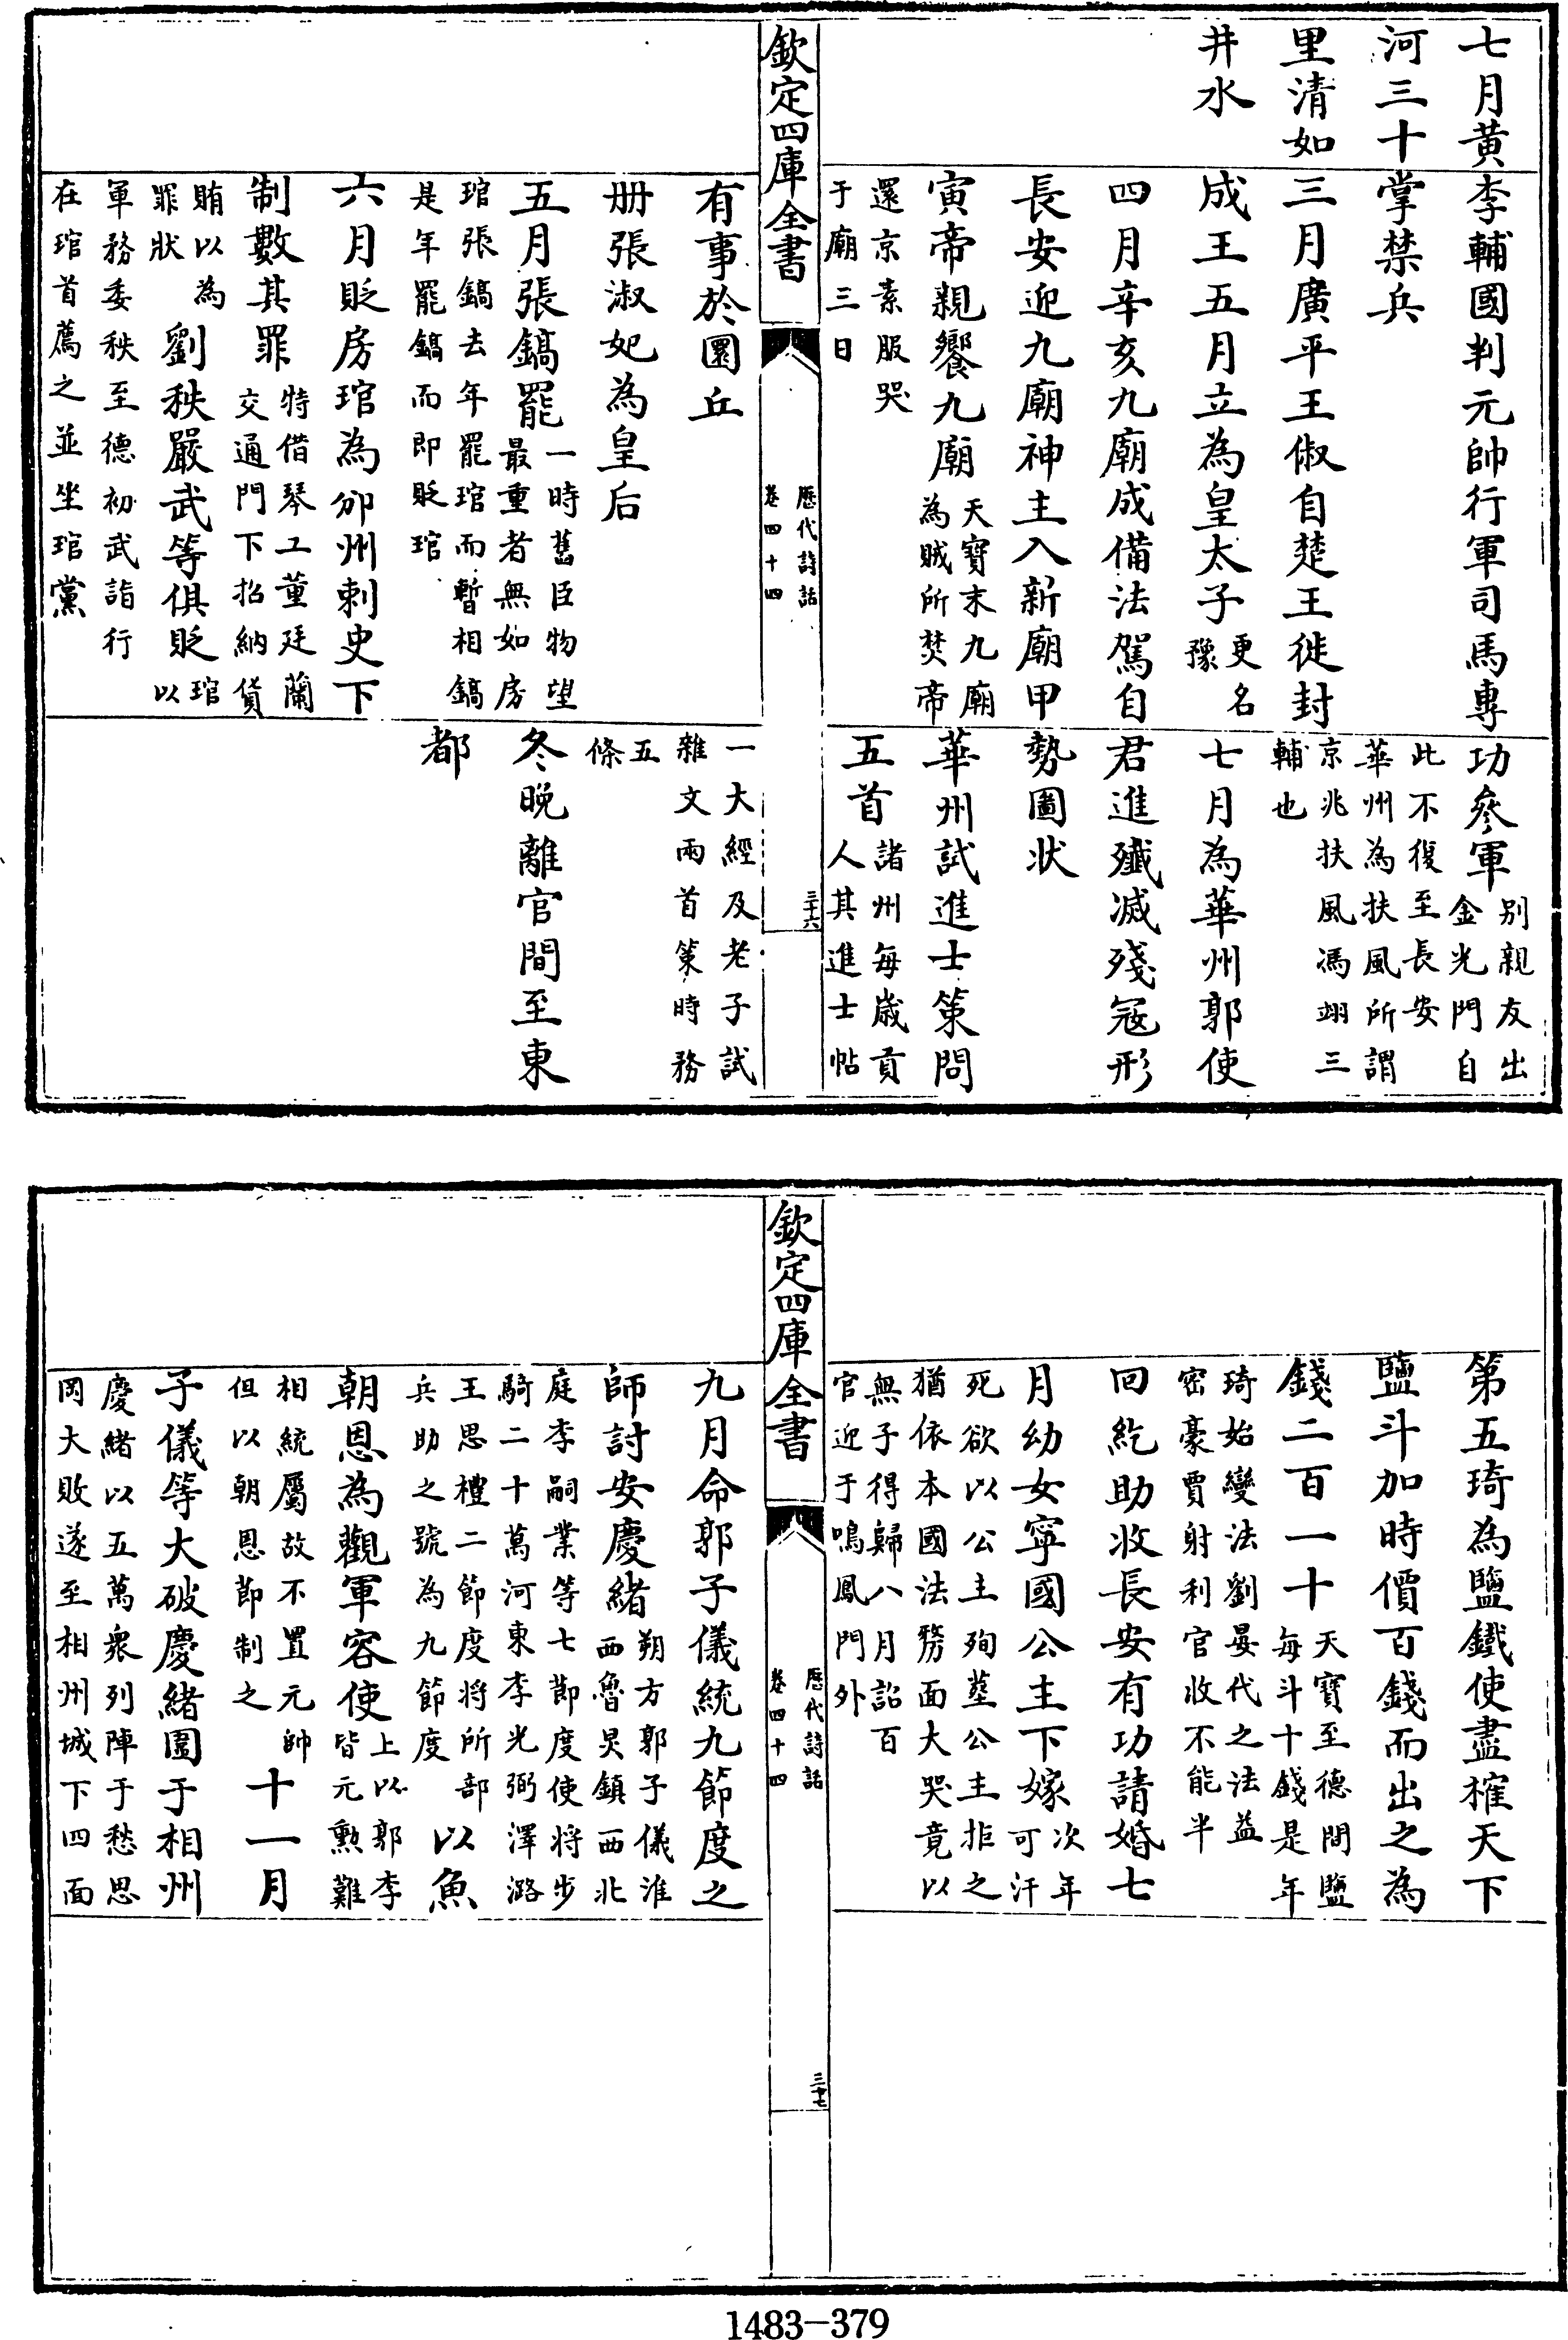 七月黃
河三十
里清如
井水
李輔國判元帥行軍司馬專
掌禁兵
三月廣平王俶自楚王徙封
成王五月立為皇太子更名豫
四月辛亥九廟成備法駕自
長安迎九廟神主入新廟甲
寅帝親饗九廟天寶末九廟為賊所焚帝
還京素服哭于廟三日
功參軍別親友出金光門自
此不復至長安華州為扶風所謂
京兆扶風馮翊三輔也
七月為華州郭使
君進殲滅殘冦形
勢圖狀
華州試進士策問
五首諸州每歲貢人其進士帖
欽定四庫全書
歷代詩話
卷四十四
三十六
有事於圜丘
册張淑妃為皇后
五月張鎬罷一時舊臣物望最重者無如房
琯張鎬去年罷琯而暫相鎬是年罷鎬而即貶琯
六月貶房琯為邠州刺史下
制數其罪特借琴工董廷蘭交通門下招納貨
賄以為罪狀劉秩嚴武等俱貶琯以
軍務委秩至德初武詣行在琯首薦之並坐琯黨
一大經及老子試雜文兩首策時務
五條
冬晚離官間至東
都
第五琦為鹽鐵使盡榷天下
鹽斗加時價百錢而出之為
錢二百一十天寶至德間鹽每斗十錢是年
琦始變法劉晏代之法益密豪賈射利官收不能半
回紇助收長安有功請婚七
月幼女寧國公主下嫁次年可汗
死欲以公主殉塟公主拒之猶依本國法剺面大哭竟以
無子得歸八月詔百官迎于鳴鳳門外
欽定四庫全書
歷代詩話
卷四十四
三十七
九月命郭子儀統九節度之
師討安慶緒朔方郭子儀淮西魯炅鎮西北
庭李嗣業等七節度使將步騎二十萬河東李光弼澤潞
王思禮二節度將所部兵助之號為九節度以魚
朝恩為觀軍容使上以郭李皆元勲難
相統屬故不置元帥但以朝恩節制之十一月
子儀等大破慶緒圍于相州
慶緒以五萬衆列陣于愁思岡大敗遂至相州城下四面
1483-379